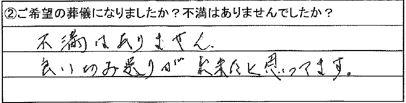 ②ご希望の葬儀になりましたか？不満はありませんでしたか？
不満はありません。
良いお見送りが出来たと思ってます。